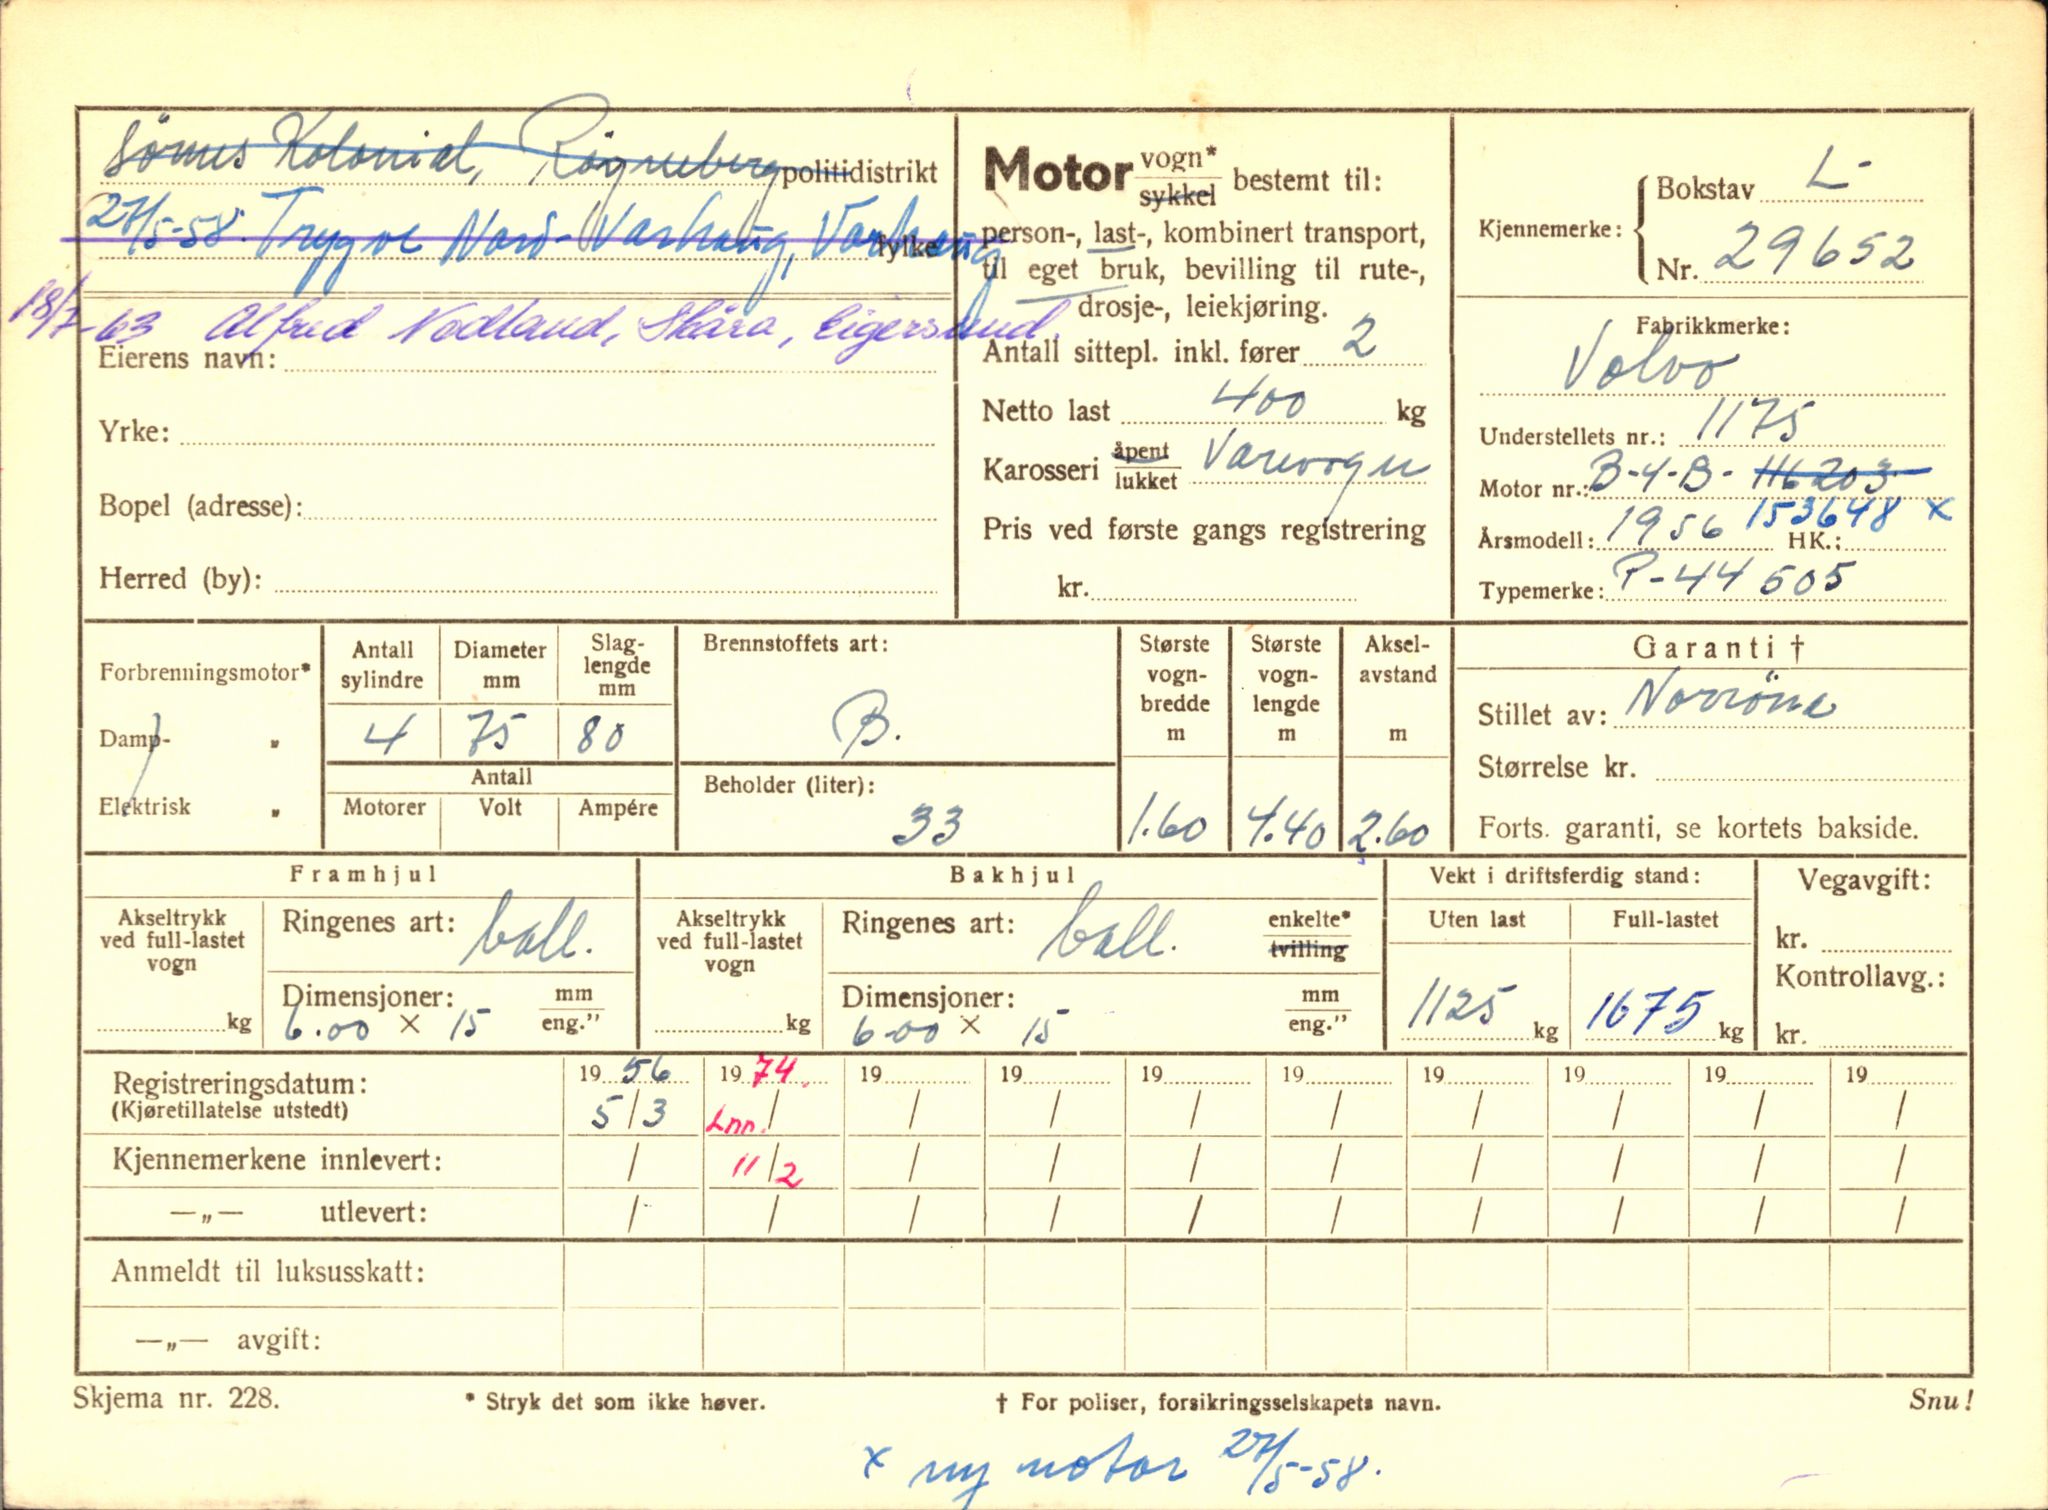 Sömes Kolonial, Rögneberg politidistrikt
27/5-58. Trygve Nord-Varhaug, Varhaug fylke
18/7-63 Alfred Nodland, Skåra, Eigersund.
Eierens navn:
Yrke:
Bopel (adresse):
Herred (by):
Motor vogn* sykkel bestemt til:
person-, last-, kombinert transport,
til eget bruk, bevilling til rute-,
drosje-, leiekjøring.
Antall sittepl. inkl. fører 2
Netto last 400 kg
Karosseri åpent lukket Varevogn
Pris ved første gangs registrering
kr.
Kjennemerke: Bokstav L-
Nr. 29652
Fabrikkmerke:
Volvo
Understellets nr.: 1175
Motor nr.: B-4-B- 116203
153648 x
Årsmodell: 1956 HK.:
Typemerke: P-44505
Forbrenningsmotor*
Damp- „
Elektrisk „
Antall sylindre
Diameter mm
Slag-lengde mm
4 75 80
Antall
Motorer Volt Ampére
Brennstoffets art:
B.
Beholder (liter):
33
Største vogn-bredde m
1.60
Største vogn-lengde m
4.40
Aksel-avstand m
2.60
Garanti †
Stillet av: Norröna
Størrelse kr.
Forts. garanti, se kortets bakside.
Framhjul
Akseltrykk ved full-lastet vogn
kg
Ringenes art: ball.
Dimensjoner: mm eng."
6.00 × 15
Bakhjul
Akseltrykk ved full-lastet vogn
kg
Ringenes art: ball. enkelte* tvilling
Dimensjoner: mm eng."
6.00 × 15
Vekt i driftsferdig stand:
Uten last Full-lastet
1125 kg 1675 kg
Vegavgift:
kr.
Kontrollavg.:
kr.
Registreringsdatum: 19 56 19 74. 19 19 19 19 19 19 19 19
(Kjøretillatelse utstedt) 5/3 Lnn. / / / / / / / / /
Kjennemerkene innlevert: / 11/2 / / / / / / / /
—„— utlevert: / / / / / / / / / /
Anmeldt til luksusskatt:
—„— avgift:
Skjema nr. 228. * Stryk det som ikke høver. † For poliser, forsikringsselskapets navn. Snu!
x ny motor 27/5-58.